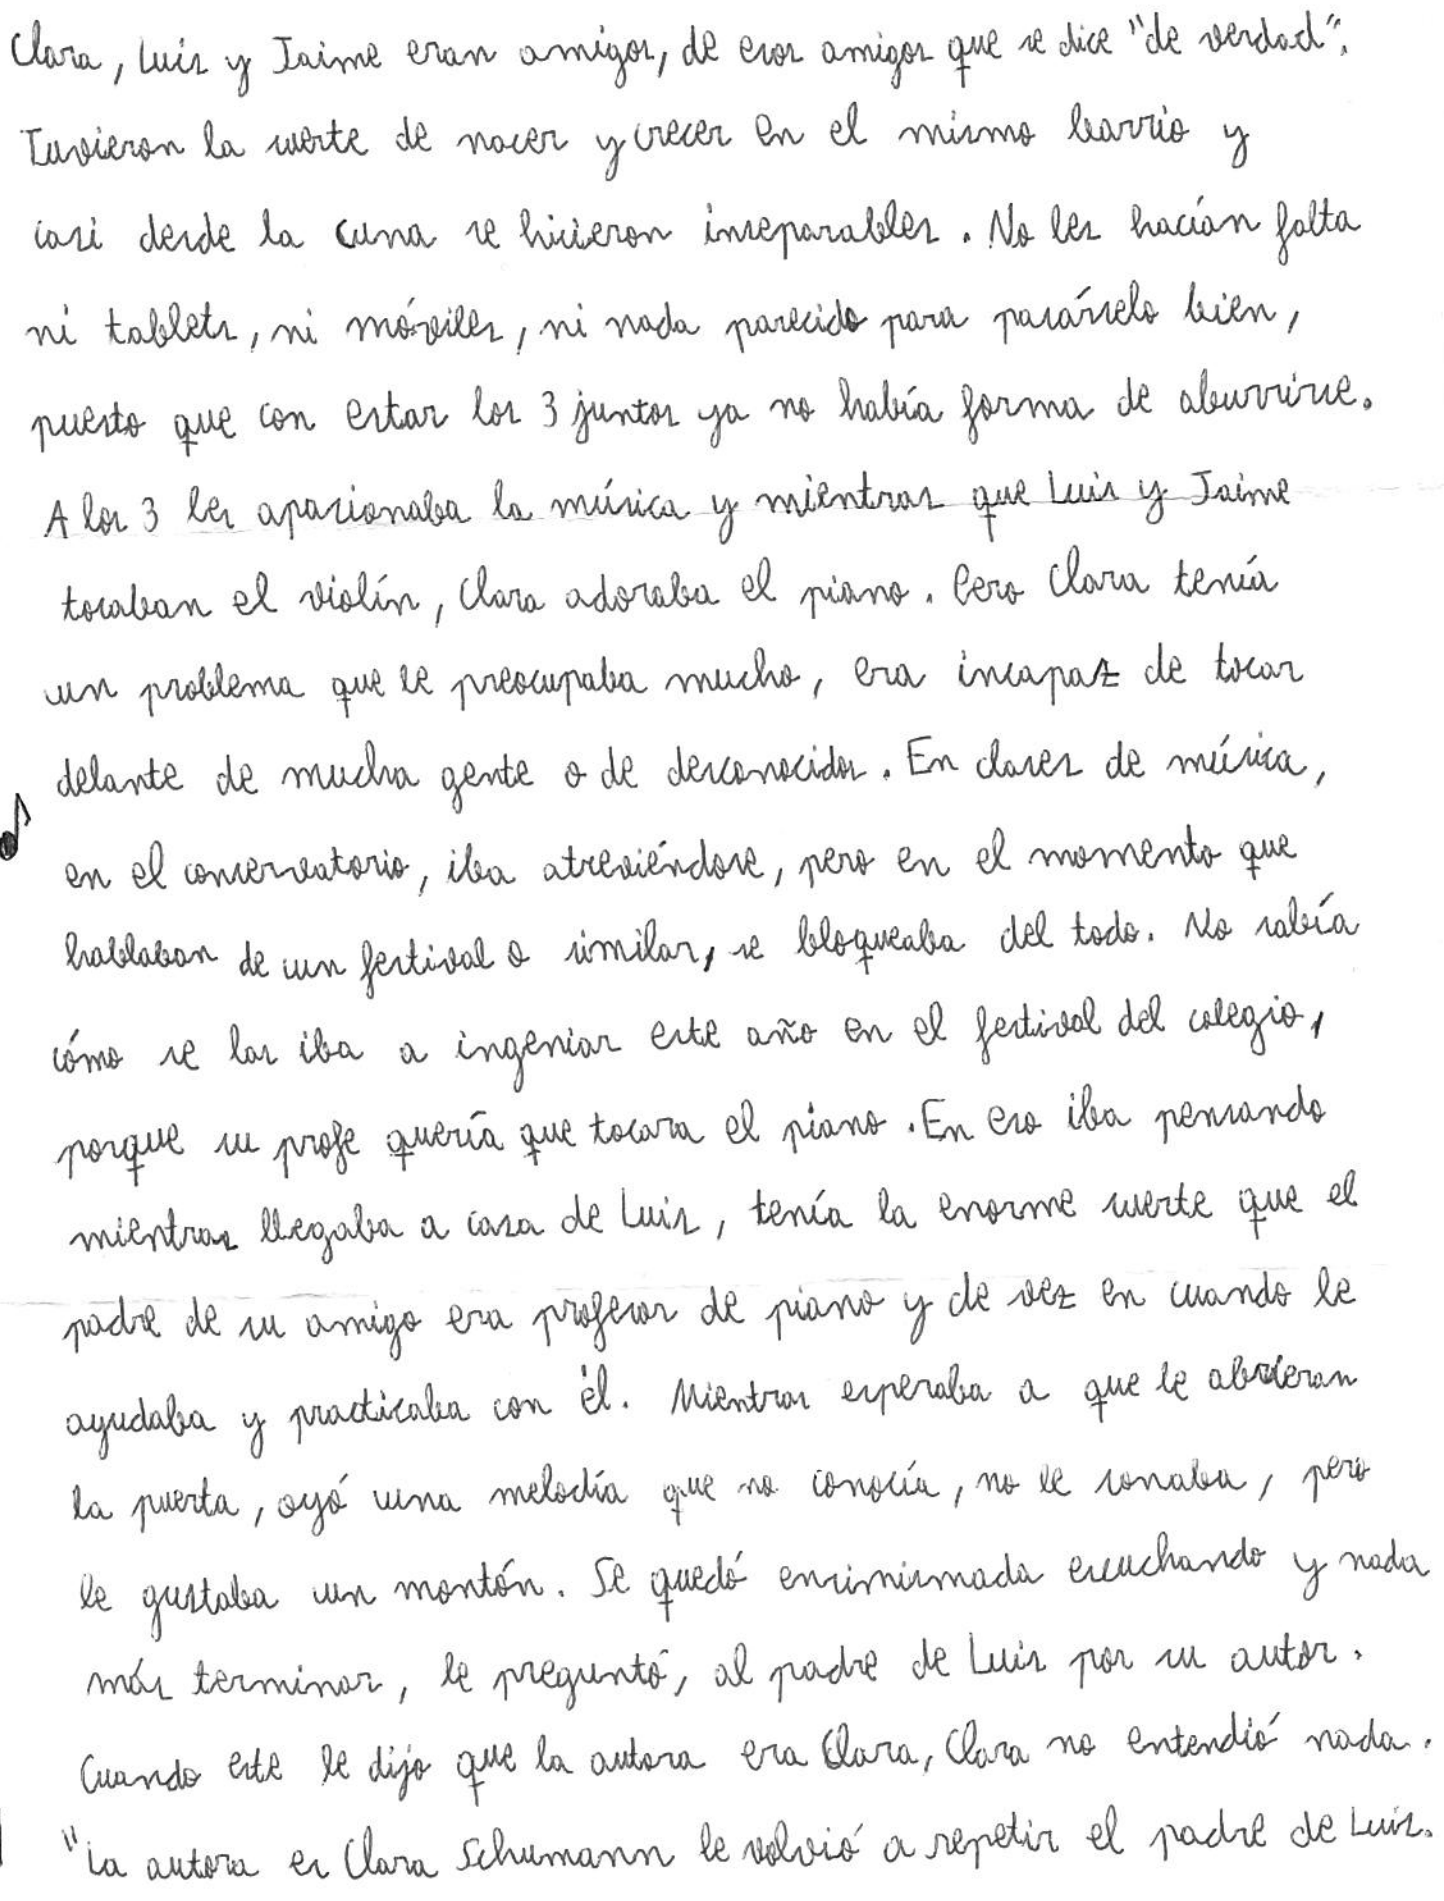 Clara, Luis y Jaime eran amigos, de esos amigos que se dice "de verdad".
Tuvieron la suerte de nacer y crecer en el mismo barrio y
casi desde la cuna se hicieron inseparables. No les hacían falta
ni tablets, ni móviles, ni nada parecido para pasárselo bien,
puesto que con estar los 3 juntos ya no había forma de aburrirse.
A los 3 les apasionaba la música y mientras que Luis y Jaime
tocaban el violín, Clara adoraba el piano. Pero Clara tenía
un problema que le preocupaba mucho, era incapaz de tocar
delante de mucha gente o de desconocidos. En clases de música,
en el conservatorio, iba atreviéndose, pero en el momento que
hablaban de un festival o similar, se bloqueaba del todo. No sabía
cómo se las iba a ingeniar este año en el festival del colegio,
porque su profe quería que tocara el piano. En eso iba pensando
mientras llegaba a casa de Luis, tenía la enorme suerte que el
padre de su amigo era profesor de piano y de vez en cuando le
ayudaba y practicaba con él. Mientras esperaba a que le abrieran
la puerta, oyó una melodía que no conocía, no le sonaba, pero
le gustaba un montón. Se quedó ensimismada escuchando y nada
más terminar, le preguntó, al padre de Luis por su autor.
Cuando este le dijo que la autora era Clara, Clara no entendió nada.
"La autora es Clara Schumann le volvió a repetir el padre de Luis.